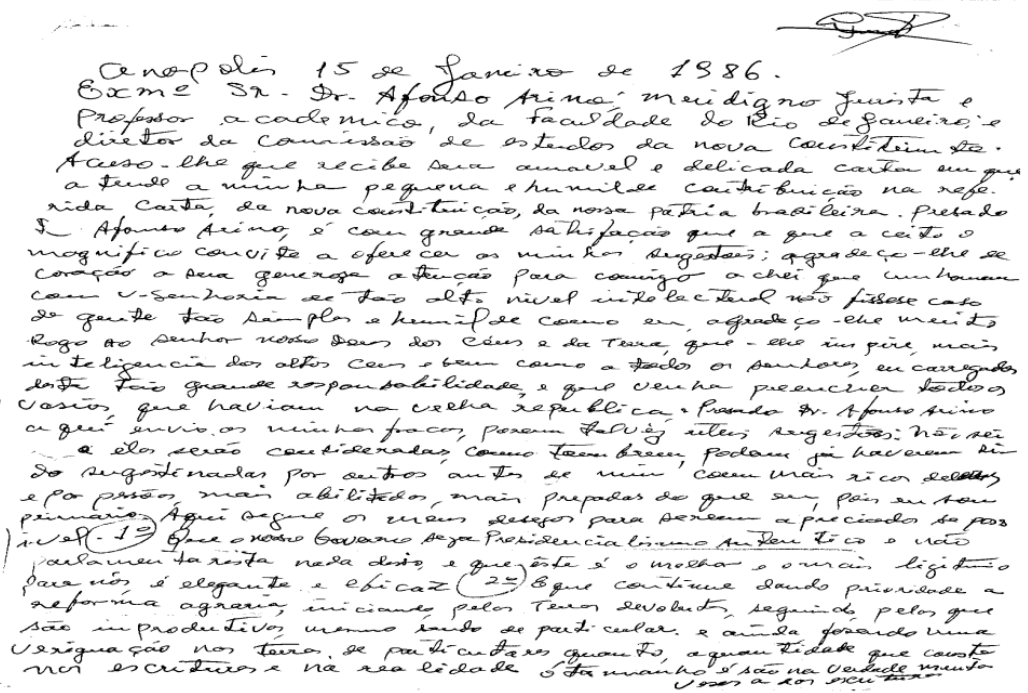 Anopolis 15 de Janeiro de 1986.
Exmº Sr. Dr. Afonso Arino, meidigno Jurista e
Professor academico, da Faculdade do Rio de Janeiro, e
diretor da comissão de estudos da nova Constituinte.
Acuso-lhe que recibe sua amavel e delicada carta em que
atende a minha pequena e humilde contribuição na refe-
rida carta, da nova constituição, da nossa pátria brasileira. Presado
Afonso Arino, é com grande satisfação que a que a ceito o
magnifico convite a oferecer as minhas sugestões; agradeço-lhe de
coração a sua generoza atenção para comigo achei que um homem
com V-Senhoria de tão alto nivel intelectual não fissese caso
de gente tão simples e humilde como eu, agradeço-lhe muito
Rogo ao senhor nosso Deus dos Céus e da Terra, que-lhe inspire, mais
inteligencia dos altos Ceus e bem como a todos os senhores, encarregados
desta tão grande responsabilidade, e que venha preencher todos os
vasios, que haviam na velha republica. Presado Dr. Afonso Arino
aqui envio os minhas fracas, porem talvêz uteis sugestões: não sei
elas serão consideradas, como tambem, podem já haverem si
do sugestinadas por outros antes de mim com mais ricos
e por pessôas mais abilitadas, mais prepadas do que eu, pois eu sou
primario. Aqui segue os meus desejos para serem apreciados se poss
ivel - 1º Que o nosso Governo seja Presidencialismo autentico e não
parlamentarista nada disto, e que êste é o melhor e o mais ligitimo
para nós, é elegante e eficaz 2º E que continue dando prioridade a
reforma agraria, iniciando pelas Terras devolutas, seguindo pelas que
são inprodutivas, mesmo sendo de particular. e ainda fazendo uma
veriguação nos terras de particulares quanto, a quantidade que consta
nos escrituras e na realidade o tamanho é são na verdade muitas
veses a nos escrituras